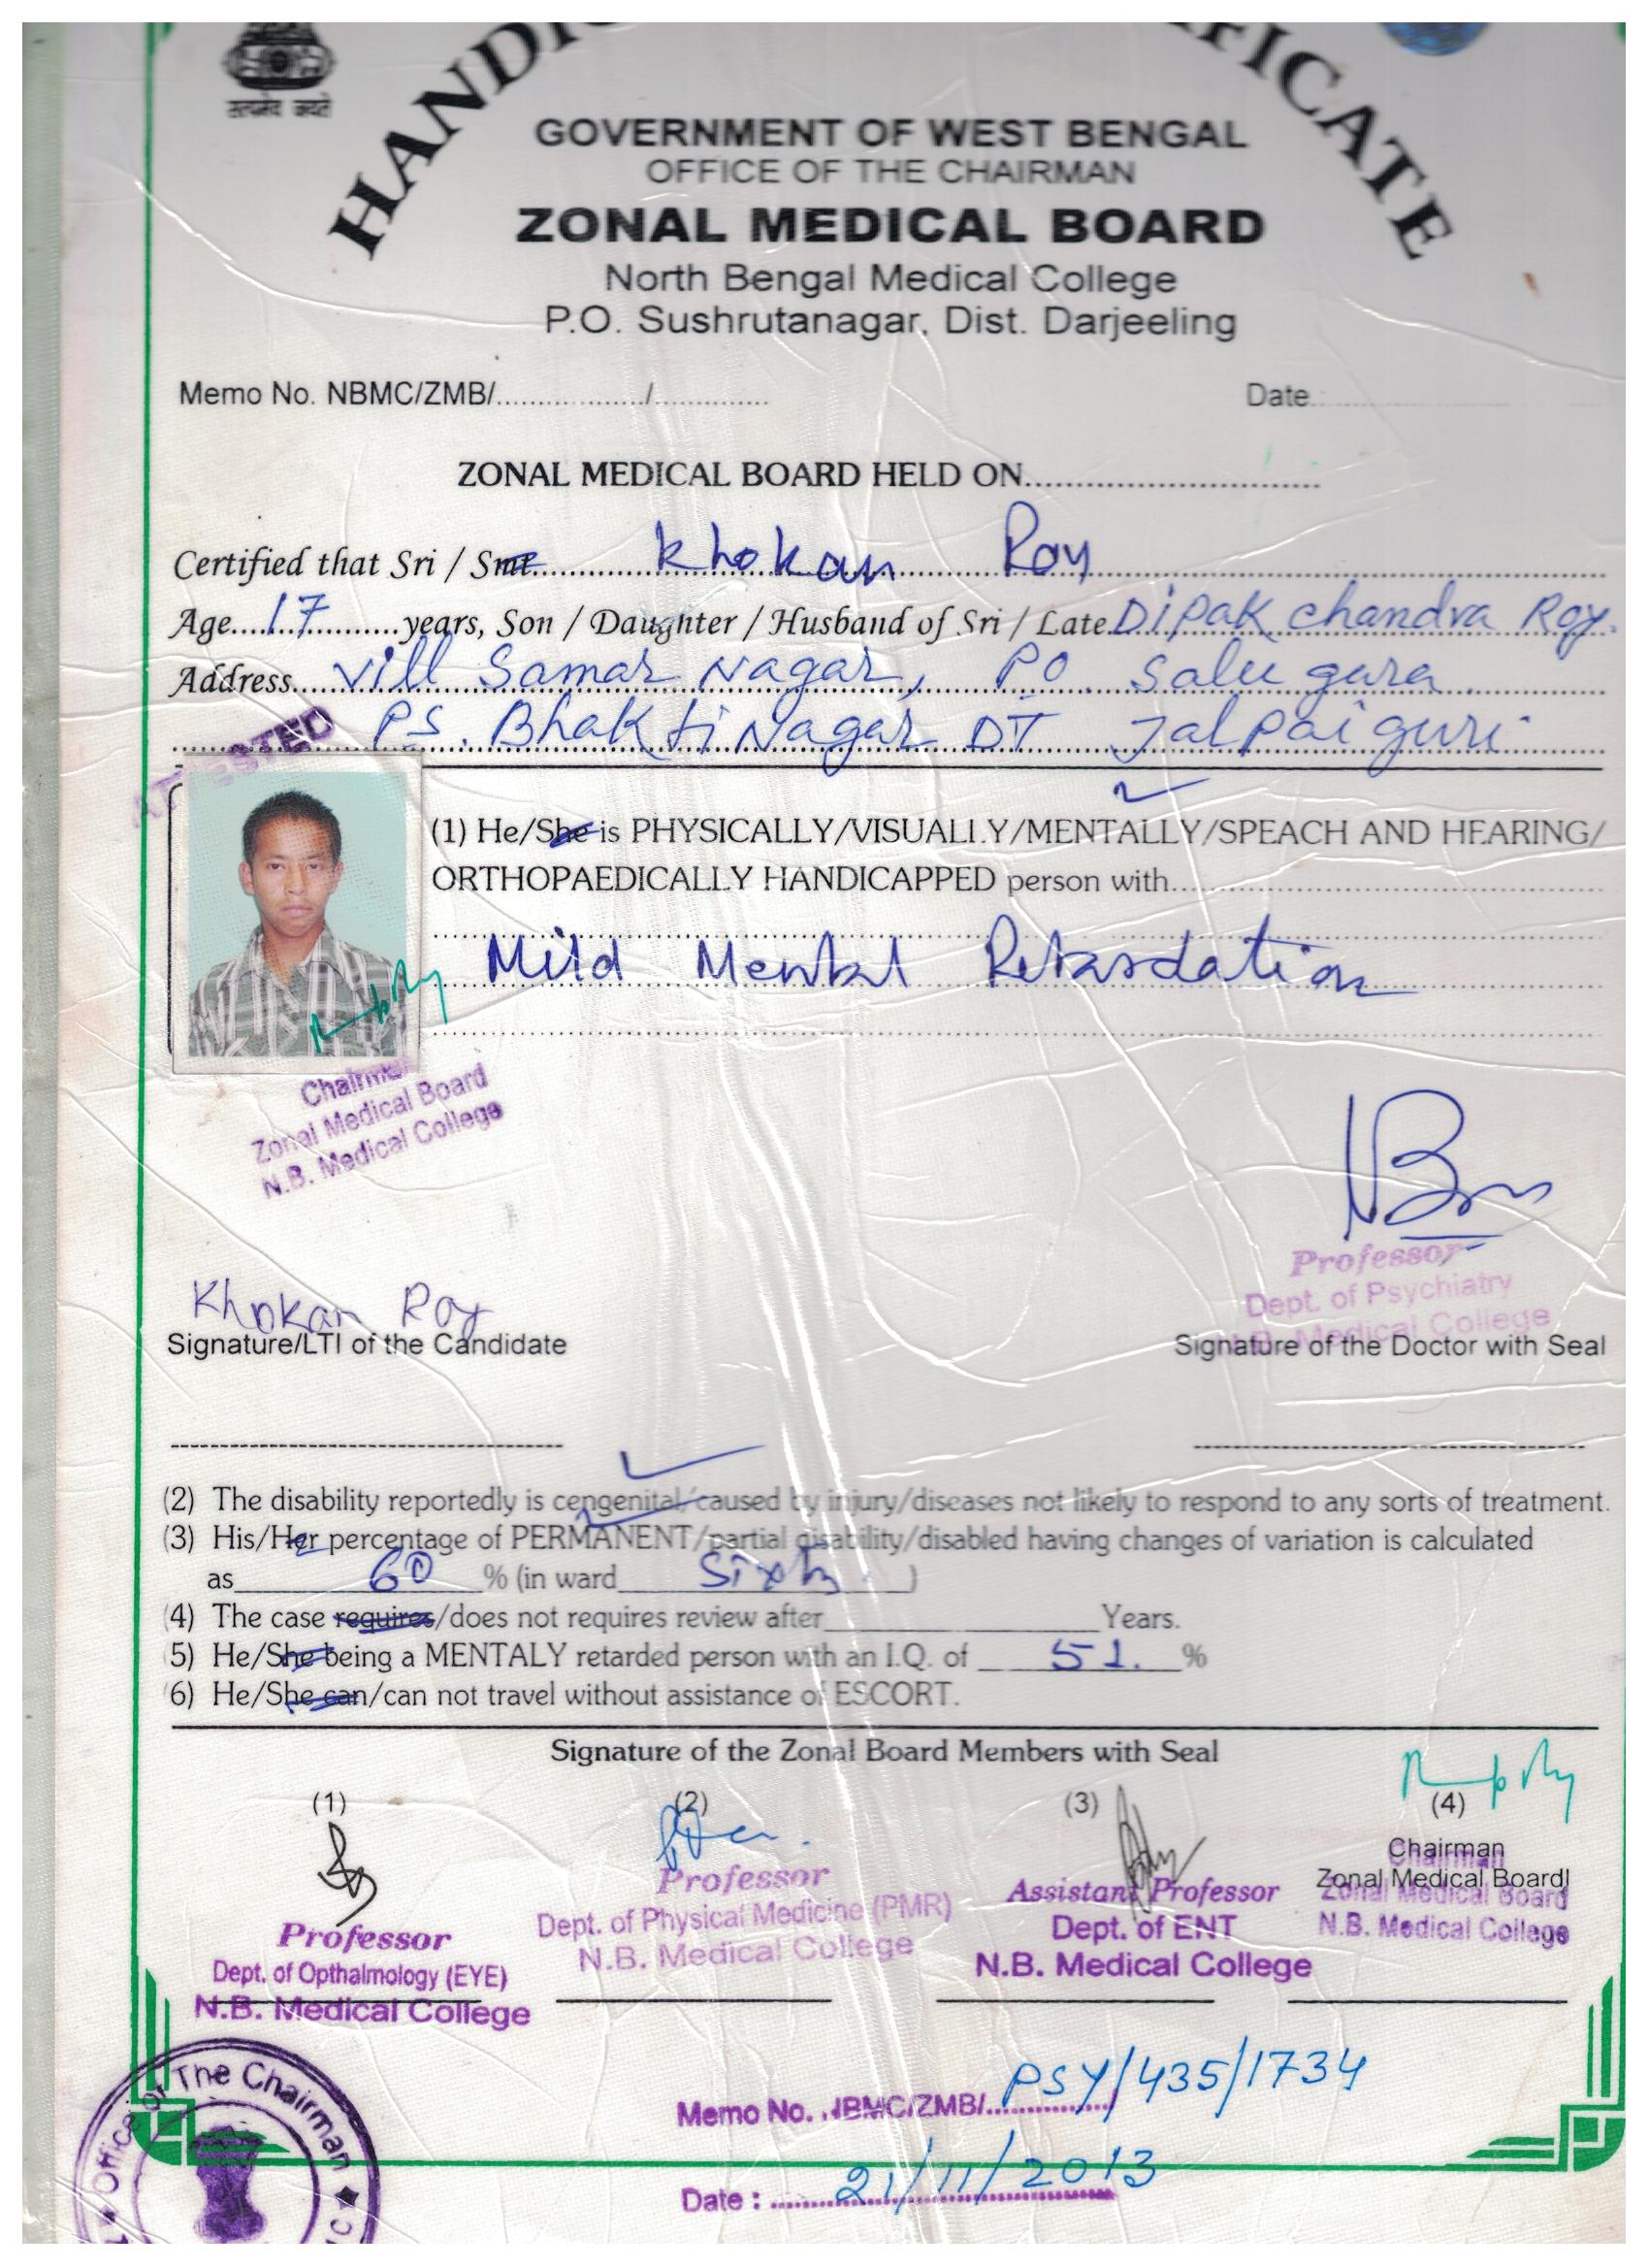 सत्यमेव जयते
HANDIC
IFICATE
GOVERNMENT OF WEST BENGAL
OFFICE OF THE CHAIRMAN
ZONAL MEDICAL BOARD
North Bengal Medical College
P.O. Sushrutanagar, Dist. Darjeeling
Memo No. NBMC/ZMB/................../..............
Date.......................
ZONAL MEDICAL BOARD HELD ON.................................
Certified that Sri / Smt. Khokan Roy
Age 17 years, Son / Daughter / Husband of Sri / Late Dipak chandra Roy.
Address Vill Samar Nagar, PO. Salugara
PS. Bhakti Nagar DT Jalpaiguri
ATTESTED
(1) He/She is PHYSICALLY/VISUALLY/MENTALLY/SPEACH AND HEARING/
ORTHOPAEDICALLY HANDICAPPED person with
Mild Mental Retardation
Chairman
Zonal Medical Board
N.B. Medical College
Professor
Dept. of Psychiatry
N.B. Medical College
Khokan Roy
Signature/LTI of the Candidate
Signature of the Doctor with Seal
(2) The disability reportedly is cengenital/caused by injury/diseases not likely to respond to any sorts of treatment.
(3) His/Her percentage of PERMANENT/partial disability/disabled having changes of variation is calculated
as 60 % (in ward Sixty )
(4) The case requires/does not requires review after Years.
5) He/She being a MENTALY retarded person with an I.Q. of 51. %
6) He/She can/can not travel without assistance of ESCORT.
Signature of the Zonal Board Members with Seal
(1) (2) (3) (4)
Professor
Dept. of Opthalmology (EYE)
N.B. Medical College
Professor
Dept. of Physical Medicine (PMR)
N.B. Medical College
Assistant Professor
Dept. of ENT
N.B. Medical College
Chairman
Zonal Medical Board
Chairman
Zonal Medical Board
N.B. Medical College
Office of The Chairman
Memo No. NBMC/ZMB/ PSY/435/1734
Date : 21/11/2013